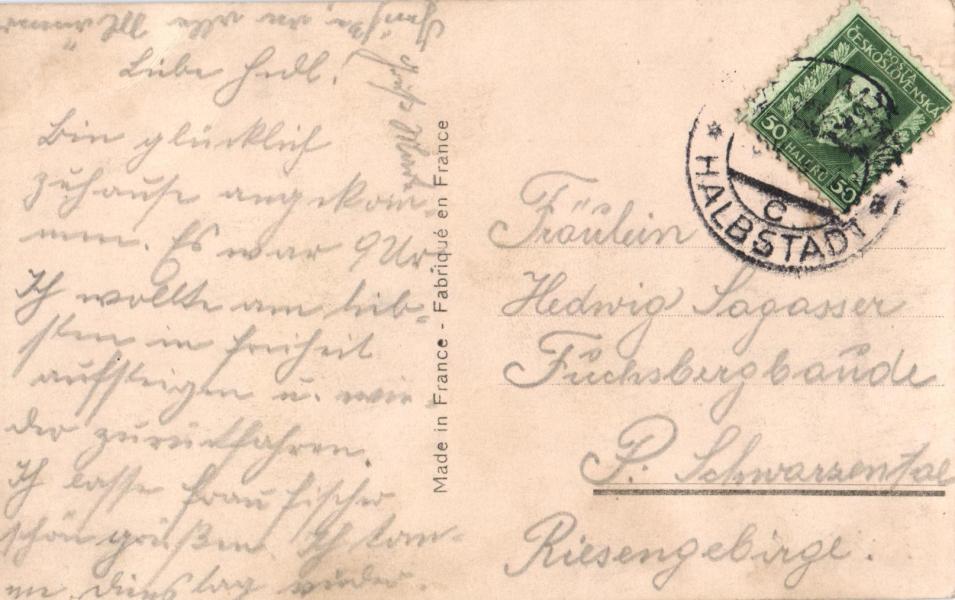 Liebe Hedl!
Bin glücklich
zuhause angekom-
men. Es war 9 Ur
Ich wollte am lieb-
sten in Freiheit
aufsteigen u. wie-
der zurückfahren.
Ich lasse Frau Fischer
schön grüßen. Ich kom-
me dienstag wieder.
Made in France - Fabriqué en France
POSTA
ČESKOSLOVENSKÁ
50 HALÉŘŮ 50
* HALBSTADT *
C
Fräulein
Hedwig Sagasser
Fuchsbergbaude
P. Schwarzental
Riesengebirge.